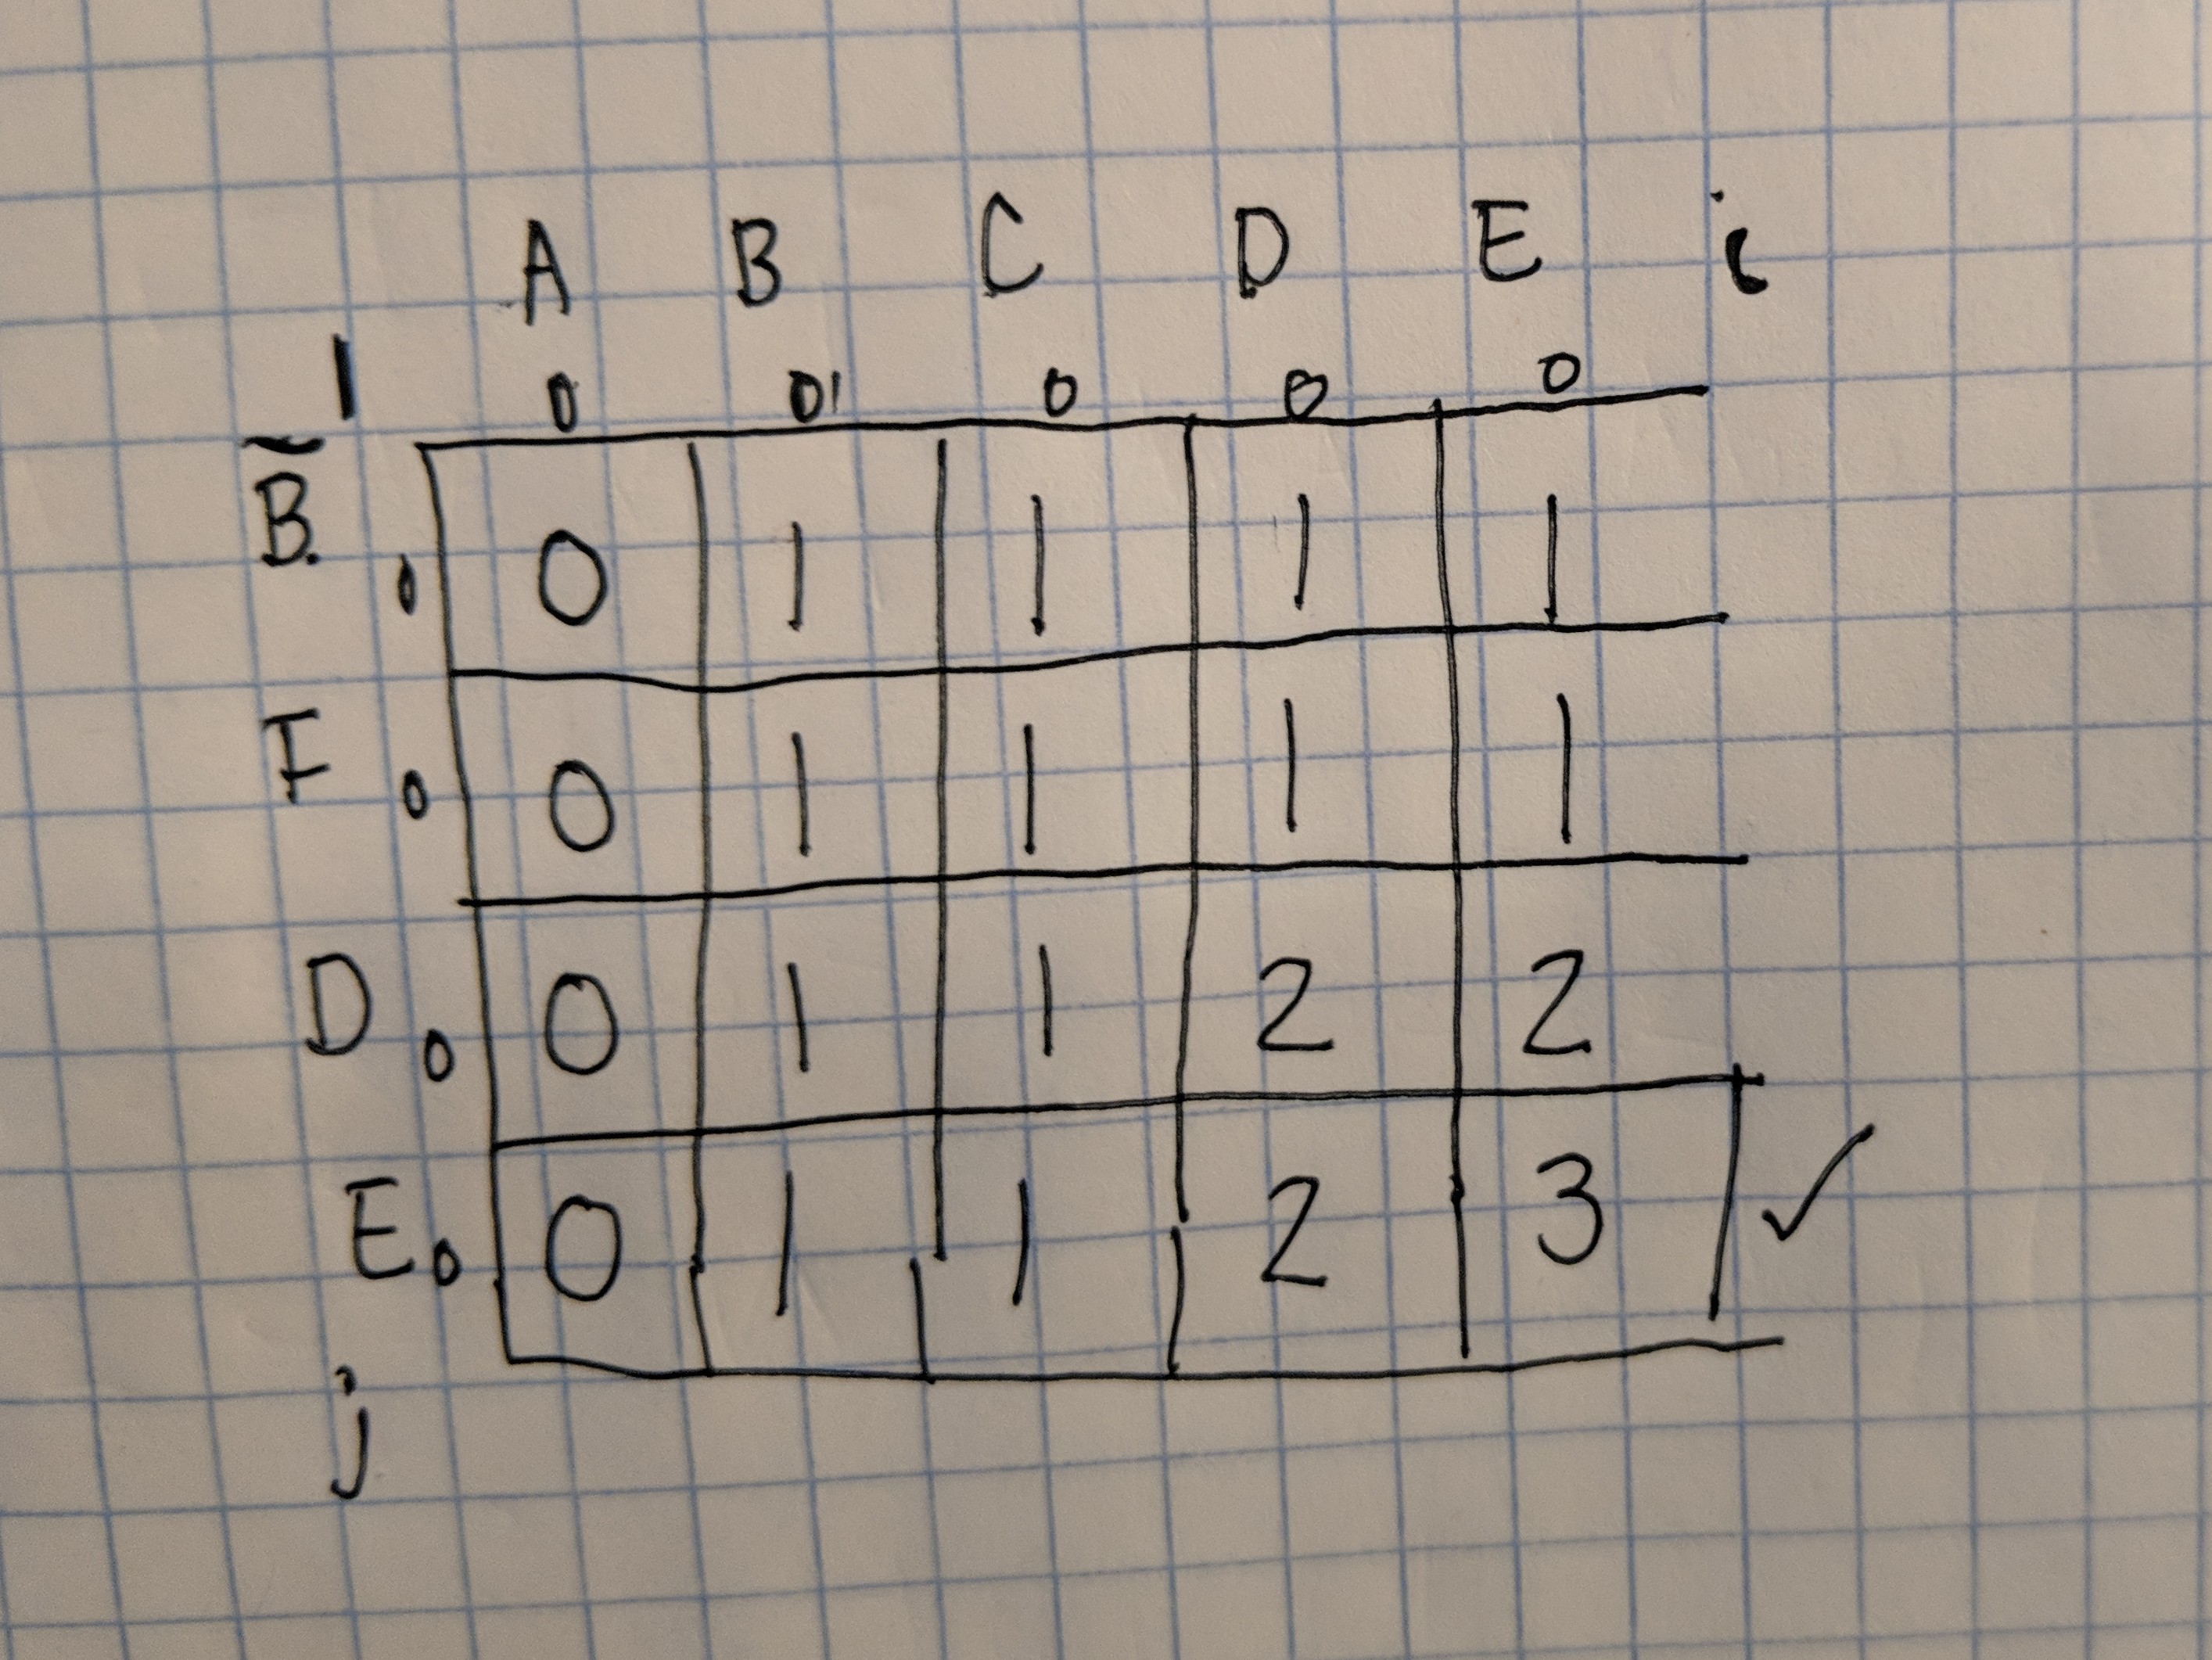 A B C D E i
1 0 0 0 0 0
B. 0 0 1 1 1 1
F 0 0 1 1 1 1
D 0 0 1 1 2 2
E 0 0 1 1 2 3 ✓
j